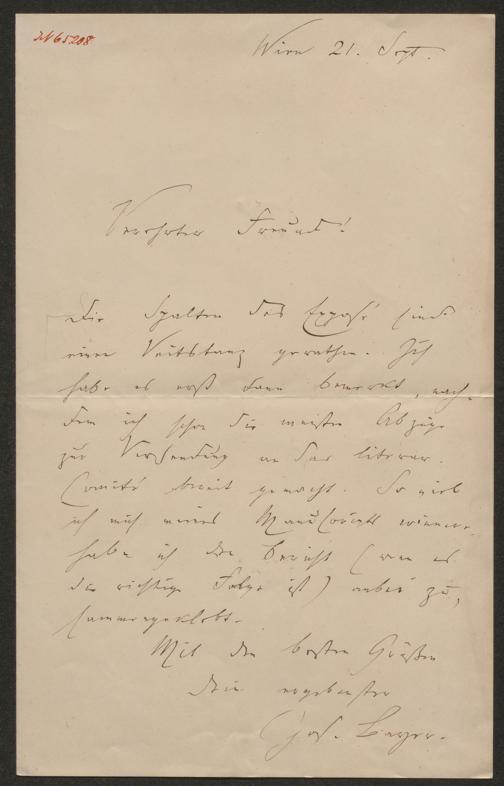 JN 65208
Wien 21. Sept.
Verehrter Freund!
Die Spalten des Exposé sind
einem Veitstanz gerathen. Ich
habe es erst dann bemerkt, nach-
dem ich schon die meisten Abzüge
zur Versendung an das literar.
Comité bereit gemacht. So viel
ich mich meines Manuscripts erinnere,
habe ich den Bericht (wie es
die richtige Folge ist) anbei zu-
sammengeklebt.
Mit den besten Grüßen
Dein ergebenster
Jos. Bayer.